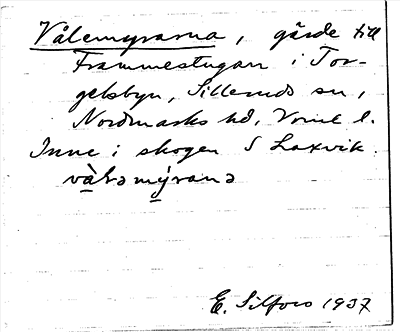 Vålemyrarna, gärde till
Frammestugan i Tor-
gelsbyn, Silleruds sn,
Nordmarks hd, Vrml l.
Inne i skogen S Laxvik.
myrana
E. Silfors 1937